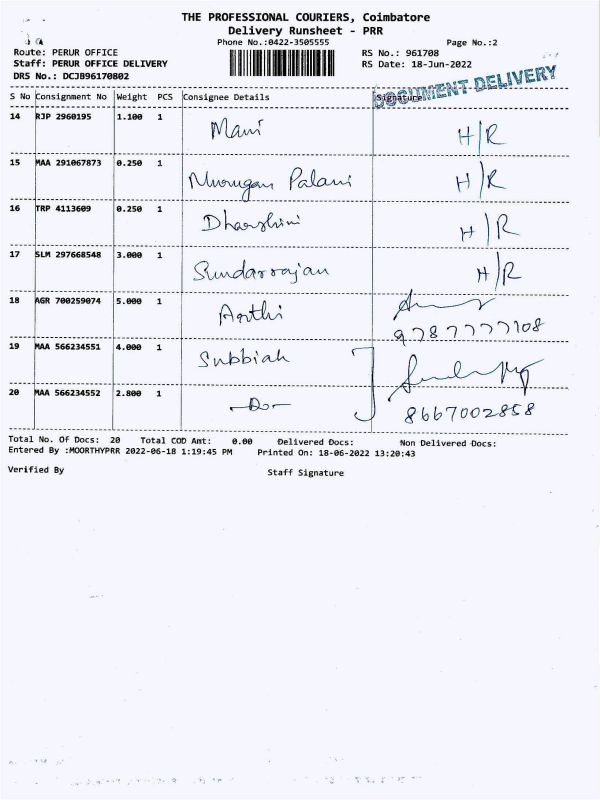 THE PROFESSIONAL COURIERS, Coimbatore
Delivery Runsheet - PRR
Phone No.:0422-3505555 Page No.:2
Route: PERUR OFFICE RS No.: 961708
Staff: PERUR OFFICE DELIVERY RS Date: 18-Jun-2022
DRS No.: DCJB96170802 DOCUMENT DELIVERY
S No Consignment No Weight PCS Consignee Details Signature
14 RJP 2960195 1.100 1 Mani H/R
15 MAA 291067873 0.250 1 Murugan Palani H/R
16 TRP 4113609 0.250 1 Dharshini H/R
17 SLM 297668548 3.000 1 Sundarrajan H/R
18 AGR 700259074 5.000 1 Aarthi
9787777108
19 MAA 566234551 4.000 1 Subbiah
20 MAA 566234552 2.800 1 -Do- 8667002858
Total No. Of Docs: 20 Total COD Amt: 0.00 Delivered Docs: Non Delivered Docs:
Entered By :MOORTHYPRR 2022-06-18 1:19:45 PM Printed On: 18-06-2022 13:20:43
Verified By Staff Signature